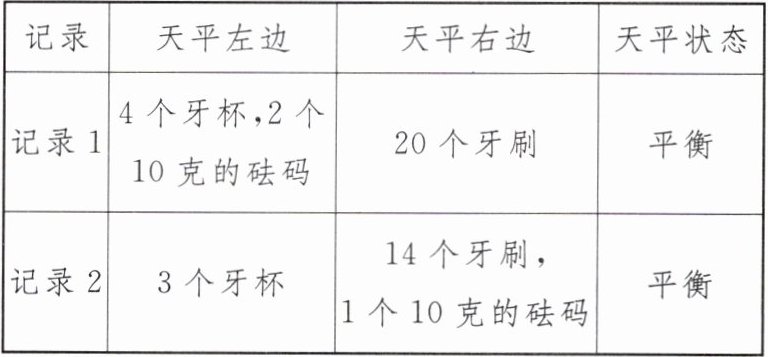 记录 天平左边 天平右边 天平状态
记录1 4个牙杯,2个10克的砝码 20个牙刷 平衡
记录2 3个牙杯 14个牙刷,1个10克的砝码 平衡